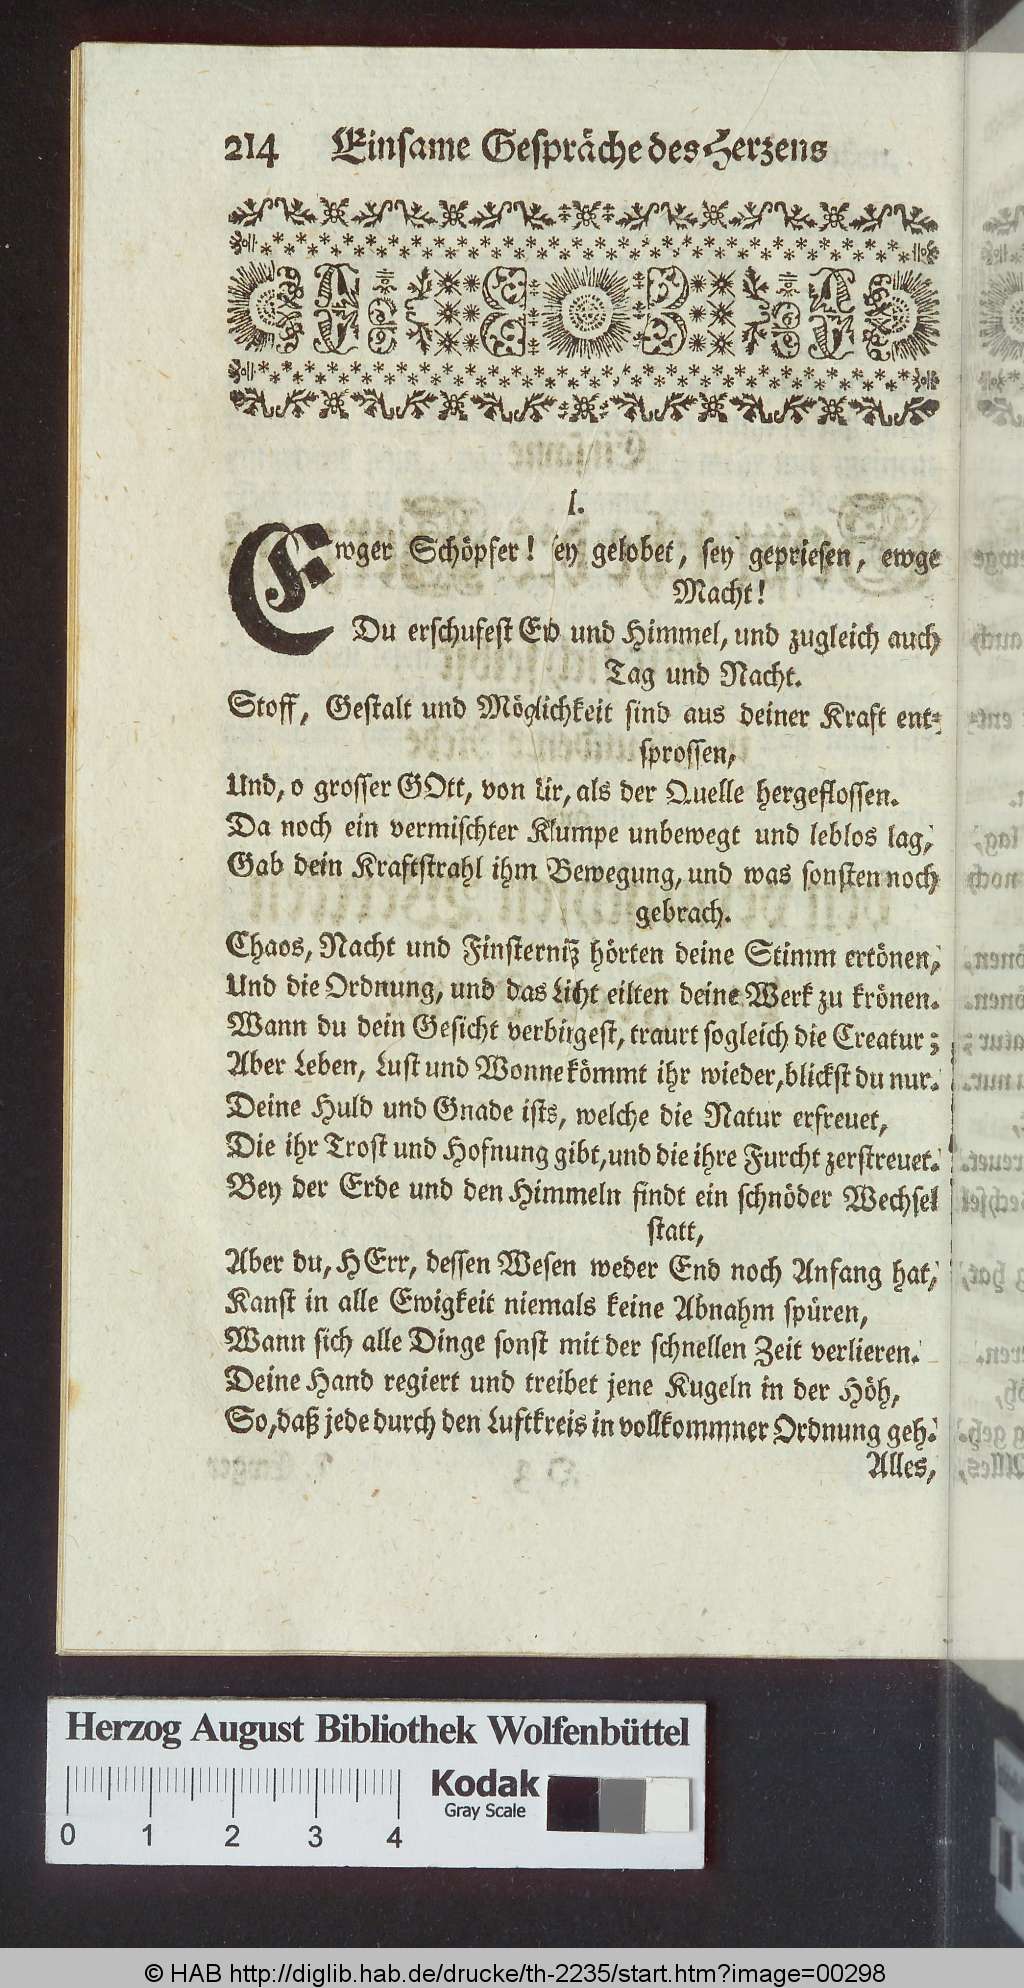 214 Einsame Gespräche des Herzens
I.
Ewger Schöpfer! sey gelobet, sey gepriesen, ewge
Macht!
Du erschufest Erd und Himmel, und zugleich auch
Tag und Nacht.
Stoff, Gestalt und Möglichkeit sind aus deiner Kraft ent-
sprossen,
Und, o grosser GOtt, von dir, als der Quelle hergeflossen.
Da noch ein vermischter Klumpe unbewegt und leblos lag,
Gab dein Kraftstrahl ihm Bewegung, und was sonsten noch
gebrach.
Chaos, Nacht und Finsterniß hörten deine Stimm ertönen,
Und die Ordnung, und das Licht eilten deine Werk zu krönen.
Wann du dein Gesicht verbirgest, traurt sogleich die Creatur;
Aber Leben, Lust und Wonne kömmt ihr wieder, blickst du nur.
Deine Huld und Gnade ists, welche die Natur erfreuet,
Die ihr Trost und Hofnung gibt, und die ihre Furcht zerstreuet.
Bey der Erde und den Himmeln findt ein schnöder Wechsel
statt,
Aber du, HErr, dessen Wesen weder End noch Anfang hat,
Kanst in alle Ewigkeit niemals keine Abnahm spüren,
Wann sich alle Dinge sonst mit der schnellen Zeit verlieren.
Deine Hand regiert und treibet jene Kugeln in der Höh,
So, daß jede durch den Luftkreis in vollkommner Ordnung geh.
Alles,
Herzog August Bibliothek Wolfenbüttel
Kodak
Gray Scale
0 1 2 3 4
© HAB http://diglib.hab.de/drucke/th-2235/start.htm?image=00298